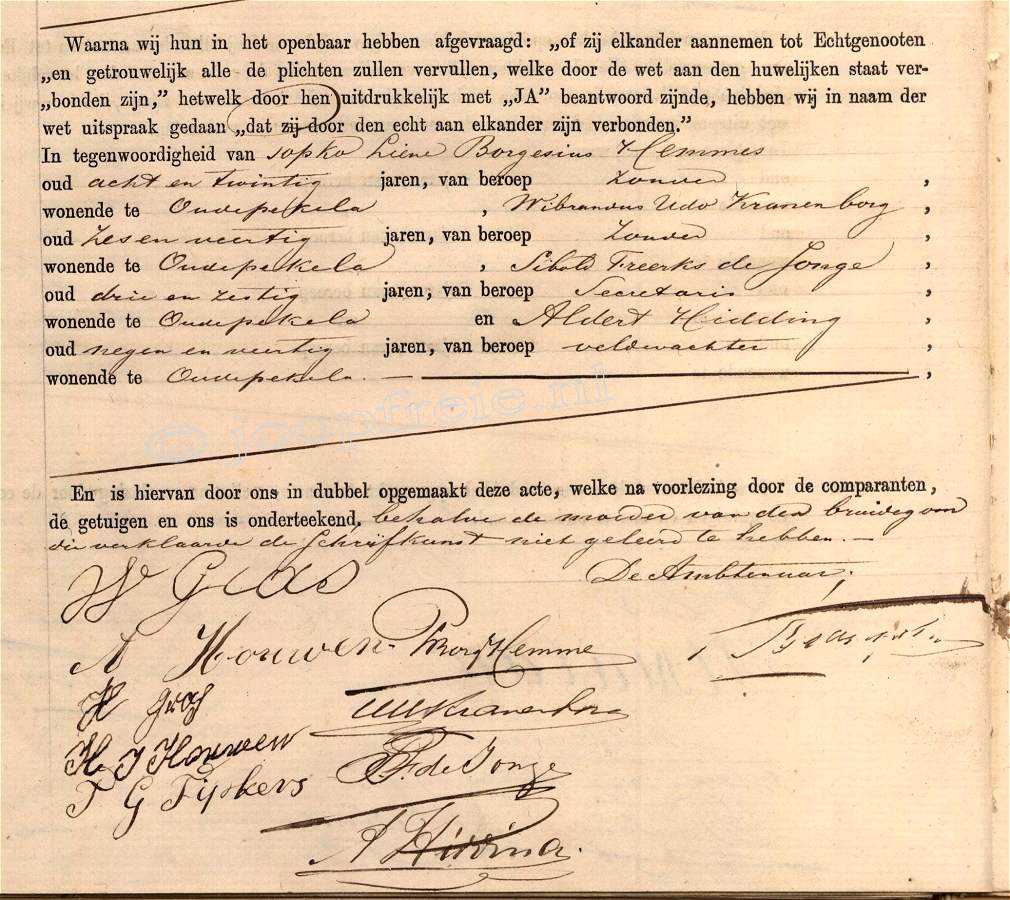 Waarna wij hun in het openbaar hebben afgevraagd: „of zij elkander aannemen tot Echtgenooten
„en getrouwelijk alle de plichten zullen vervullen, welke door de wet aan den huwelijken staat ver-
„bonden zijn,” hetwelk door hen uitdrukkelijk met „JA” beantwoord zijnde, hebben wij in naam der
wet uitspraak gedaan „dat zij door den echt aan elkander zijn verbonden.”
In tegenwoordigheid van Topko Liene Borgesius Hemmes
oud acht en twintig jaren, van beroep zonder ,
wonende te Oudepekela , Wibrandus Udo Kranenborg ,
oud zes en veertig jaren, van beroep Zonder ,
wonende te Oudepekela , Sibold Freerks de Jonge ,
oud drie en zestig jaren, van beroep Secretaris ,
wonende te Oudepekela en Aldert Hidding ,
oud negen en veertig jaren, van beroep veldwachter ,
wonende te Oudepekela. — ,
© joopfreie.nl
En is hiervan door ons in dubbel opgemaakt deze acte, welke na voorlezing door de comparanten,
de getuigen en ons is onderteekend, behalve de moeder van den bruidegom
die verklaarde de Schrijfkunst niet geleerd te hebben. —
De Ambtenaar,
W Gras
A Houwen
Borg Hemme
H Gras
WUKranenborg
H. J Houwen
SF. de Jonge
T G Tijpkers
A Hidding.